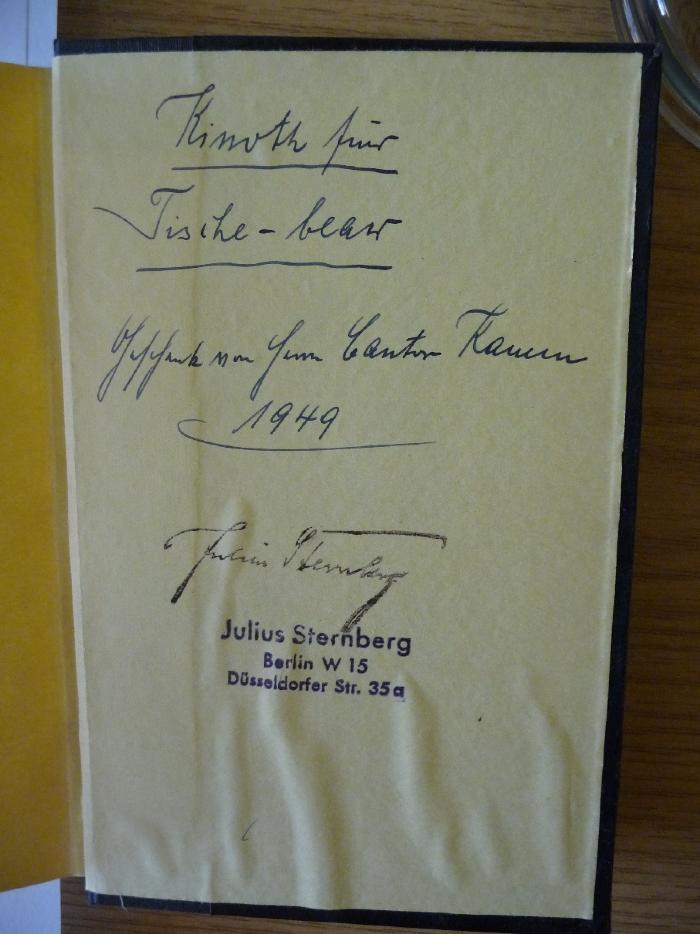 Kinoth für
Tische-beaw
Geschenk von Herrn Cantor
1949
Julius Sternberg
Julius Sternberg
Berlin W 15
Düsseldorfer Str. 35a